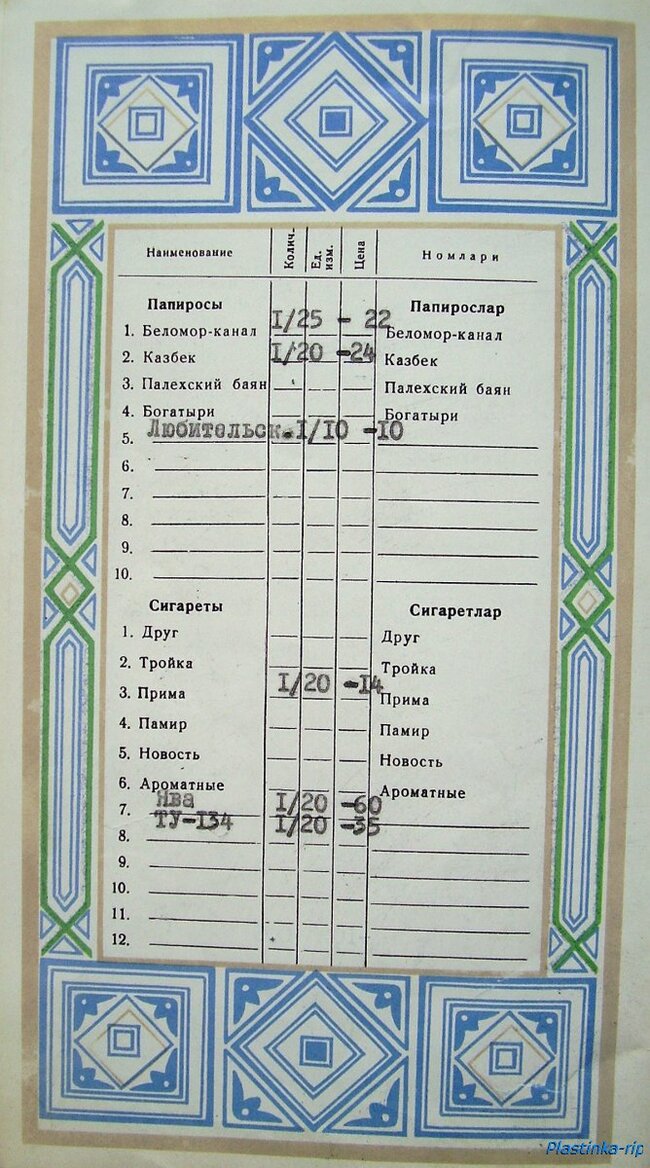 Наименование Колич. Ед. изм. Цена Номлари
Папиросы Папирослар
1. Беломор-канал I/25 - 22 Беломор-канал
2. Казбек I/20 -24 Казбек
3. Палехский баян Палехский баян
4. Богатыри Богатыри
5. Любительск. I/10 -10
6.
7.
8.
9.
10.
Сигареты Сигаретлар
1. Друг Друг
2. Тройка Тройка
3. Прима I/20 -14 Прима
4. Памир Памир
5. Новость Новость
6. Ароматные Ароматные
7. Ява I/20 -60
8. ТУ-134 I/20 -35
9.
10.
11.
12.
Plastinka-rip